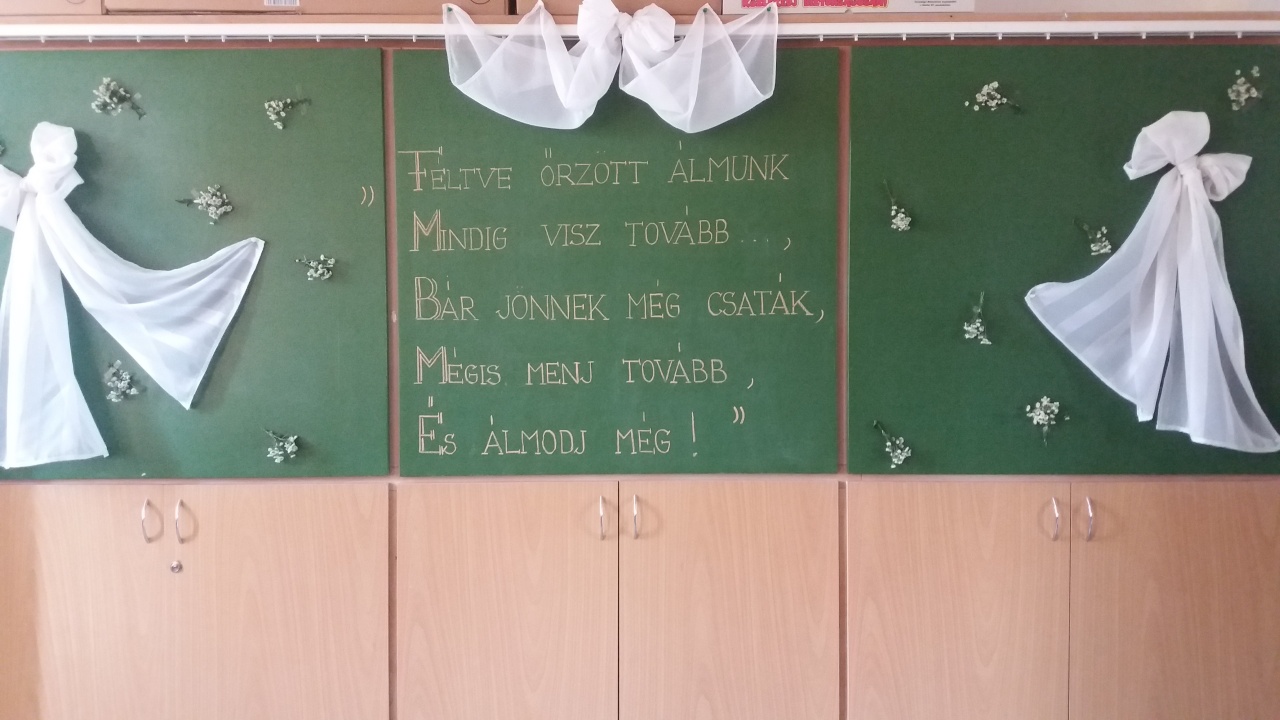 ” FÉLTVE ŐRZÖTT ÁLMUNK
MINDIG VISZ TOVÁBB...,
BÁR JÖNNEK MÉG CSATÁK,
MÉGIS MENJ TOVÁBB,
ÉS ÁLMODJ MÉG! ”